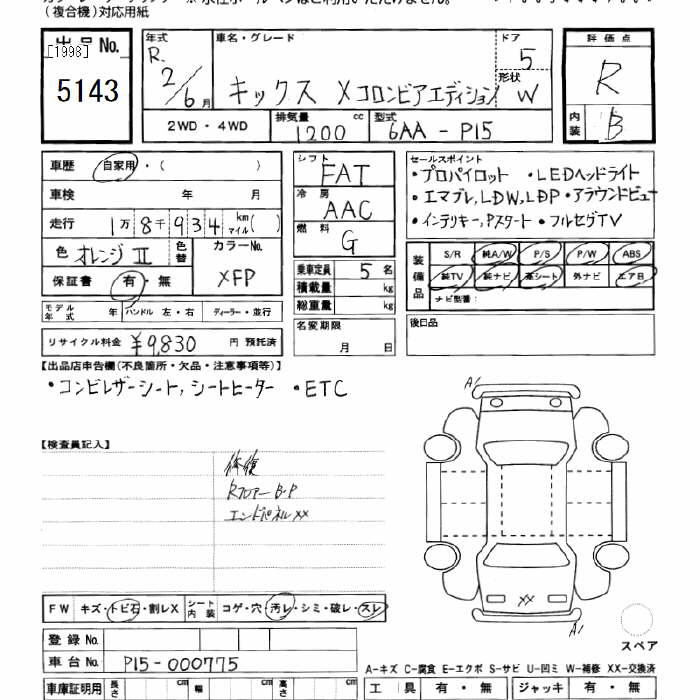 (複合機)対応用紙
出品 No.
[1998]
5143
年式
R.
2/6月
車名・グレード
キックス X コロンビアエディション
ドア
5
形状
W
2WD・4WD
排気量
1200 cc
型式
6AA - P15
評価点
R
内装
B
車歴 自家用・( )
車検 年 月
走行 1万 8千 9 3 4 km マイル ( )
色 オレンジⅡ 色替 カラーNo.
XFP
保証書 有・無
モデル年式 年 ハンドル 左・右 ディーラー・並行
リサイクル料金 ¥9,830 円 預託済
シフト
FAT
冷房
AAC
燃料
G
乗車定員 5 名
積載量 kg
総重量 kg
名変期限
月 日
セールスポイント
・プロパイロット ・LEDヘッドライト
・エマブレ,LDW,LDP ・アラウンドビュー
・インテリキー,Pスタート ・フルセグTV
装備品
S/R 純A/W P/S P/W ABS
純TV 純ナビ 革シート 外ナビ エアB
ナビ型番:
後日品
【出品店申告欄(不良箇所・欠品・注意事項等)】
・コンビレザーシート,シートヒーター ・ETC
【検査員記入】
修復
Rフロアー B・P
エンドパネル XX
A1
XX
A1
スペア
FW キズ・トビ石・割レX シート内装 コゲ・穴・汚レ・シミ・破レ・スレ
登録 No.
車台 No. P15-000775
A-キズ C-腐食 E-エクボ S-サビ U-凹ミ W-補修 XX-交換済
車庫証明用 長さ cm 幅 cm 高さ cm
工具 有・無 ジャッキ 有・無